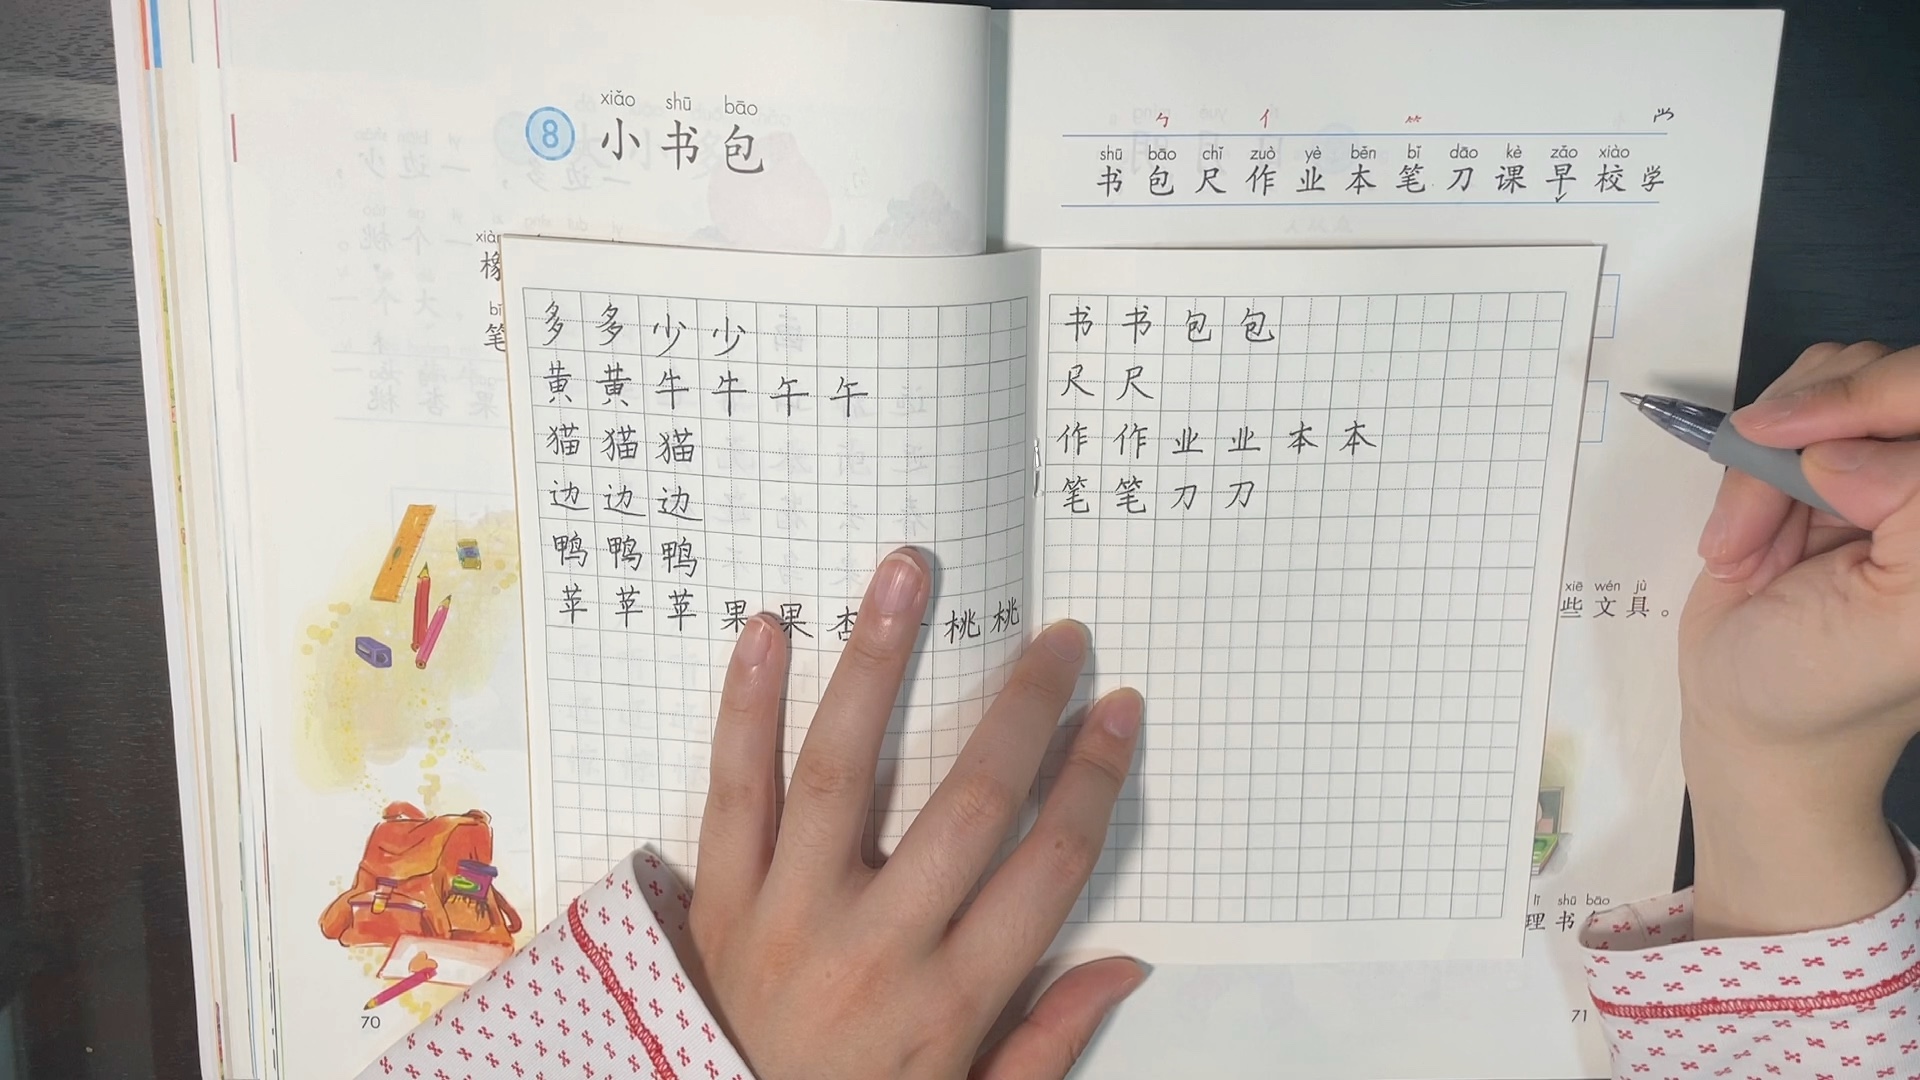 xiǎo shū bāo
8 小书包
勹 亻 ⺮ 𰃮
shū bāo chǐ zuò yè běn bǐ dāo kè zǎo xiào
书 包 尺 作 业 本 笔 刀 课 早 校 学
xiàn
橡
bǐ
笔
多 多 少 少
黄 黄 牛 牛 午 午
猫 猫 猫
边 边 边
鸭 鸭 鸭
苹 苹 苹 果 果 杏 桃 桃
书 书 包 包
尺 尺
作 作 业 业 本 本
笔 笔 刀 刀
xiē wén jù
些 文 具 。
lǐ shū bāo
理 书
70
71